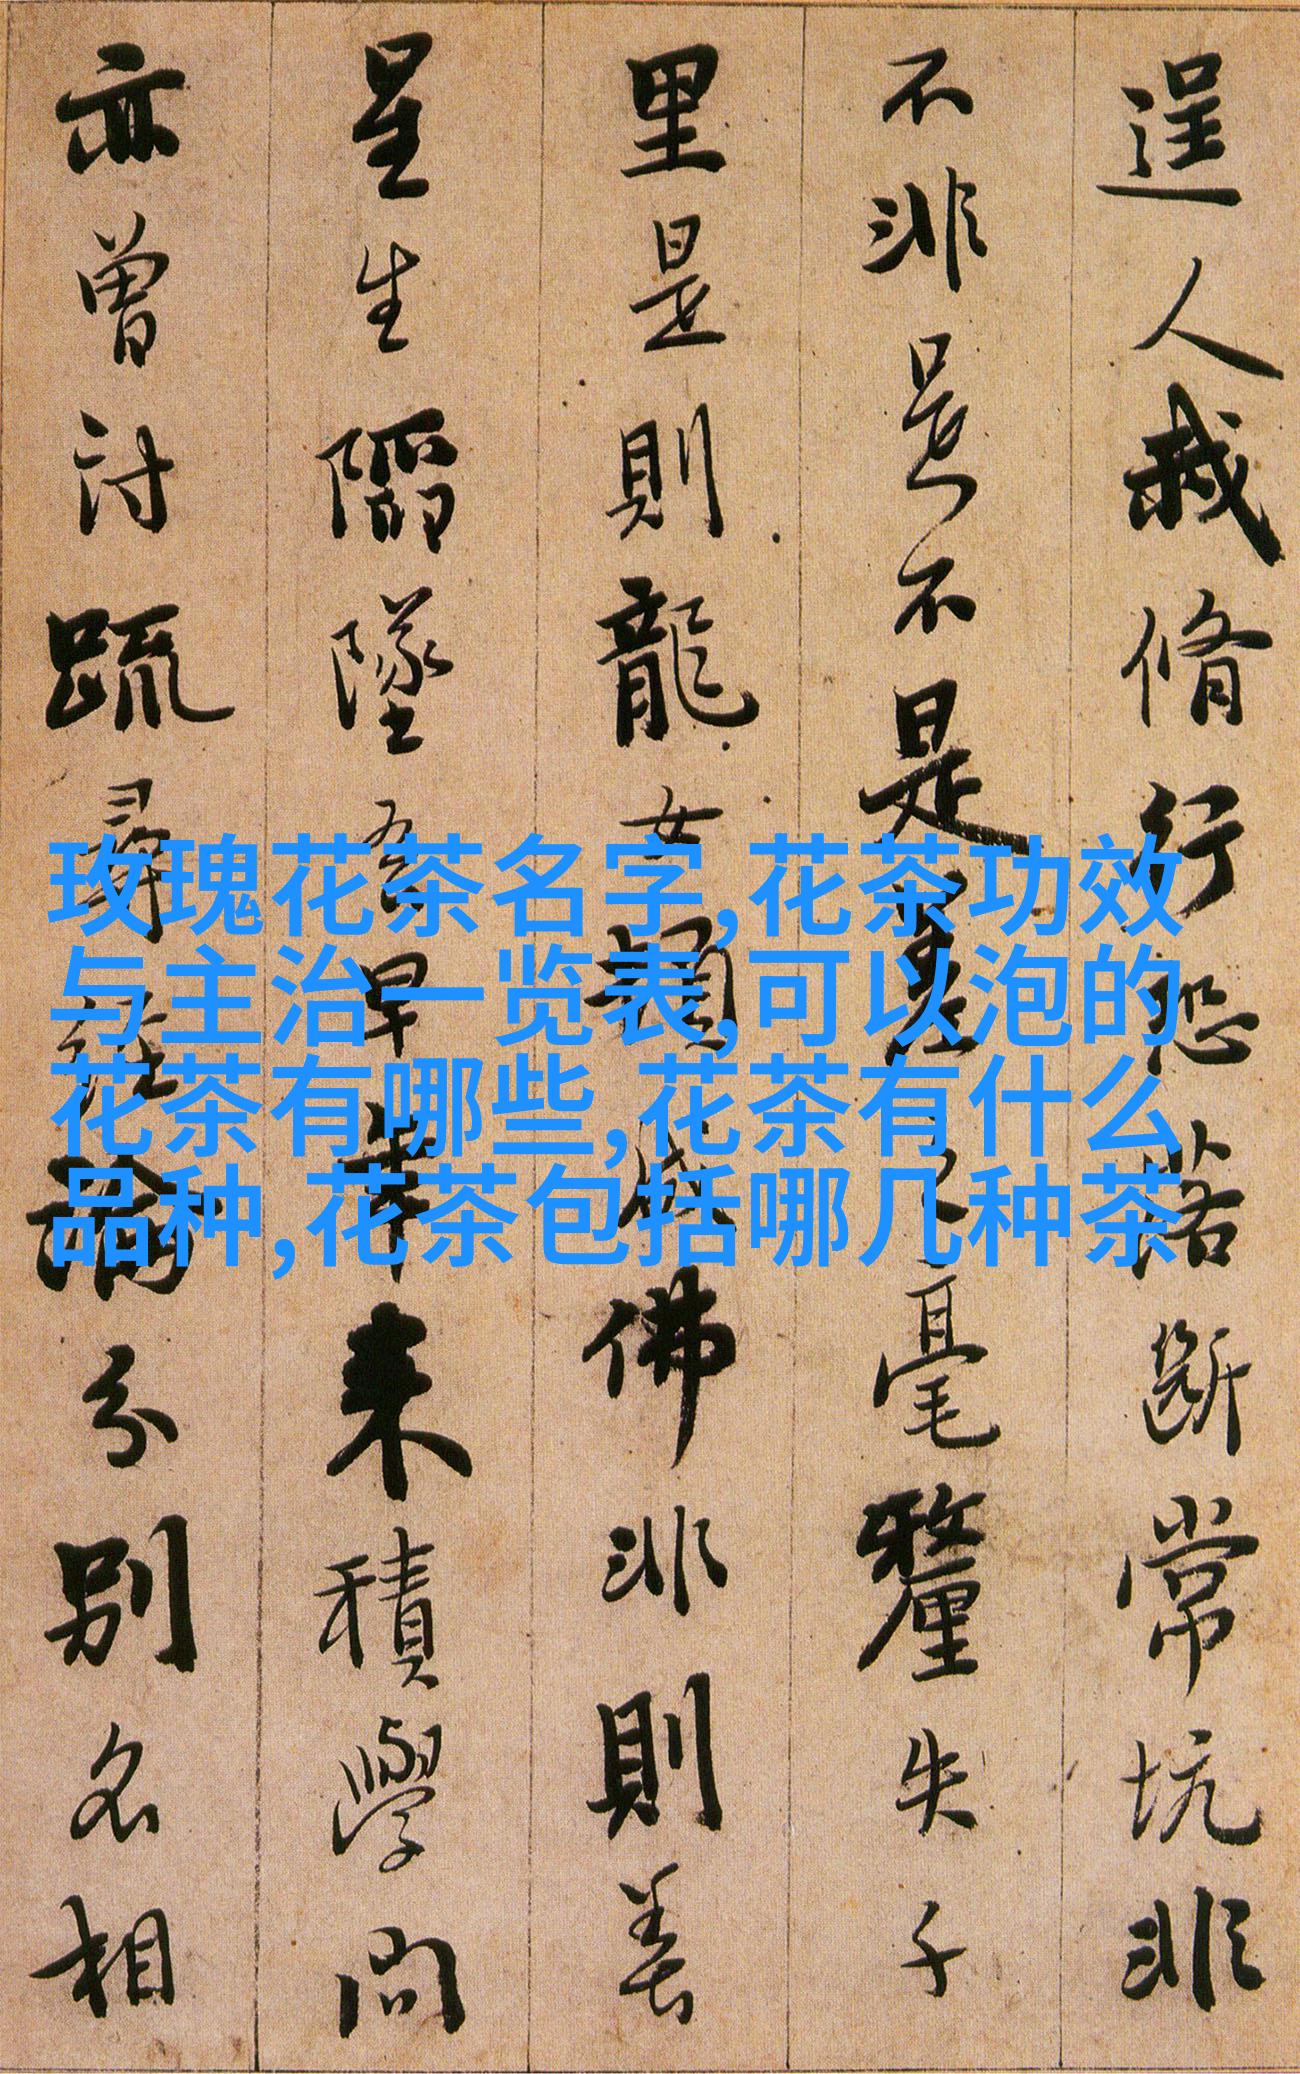 逞人我脩行恐落斷常坑非
不非是不是差之毫釐失千
里是則龍女頓成佛非則善
星生陷墜吾早年來積學問
亦曾討疏尋經論分別名相
玫瑰花茶名字,花茶功效
与主治一览表,可以泡的
花茶有哪些,花茶有什么
品种,花茶包括哪几种茶